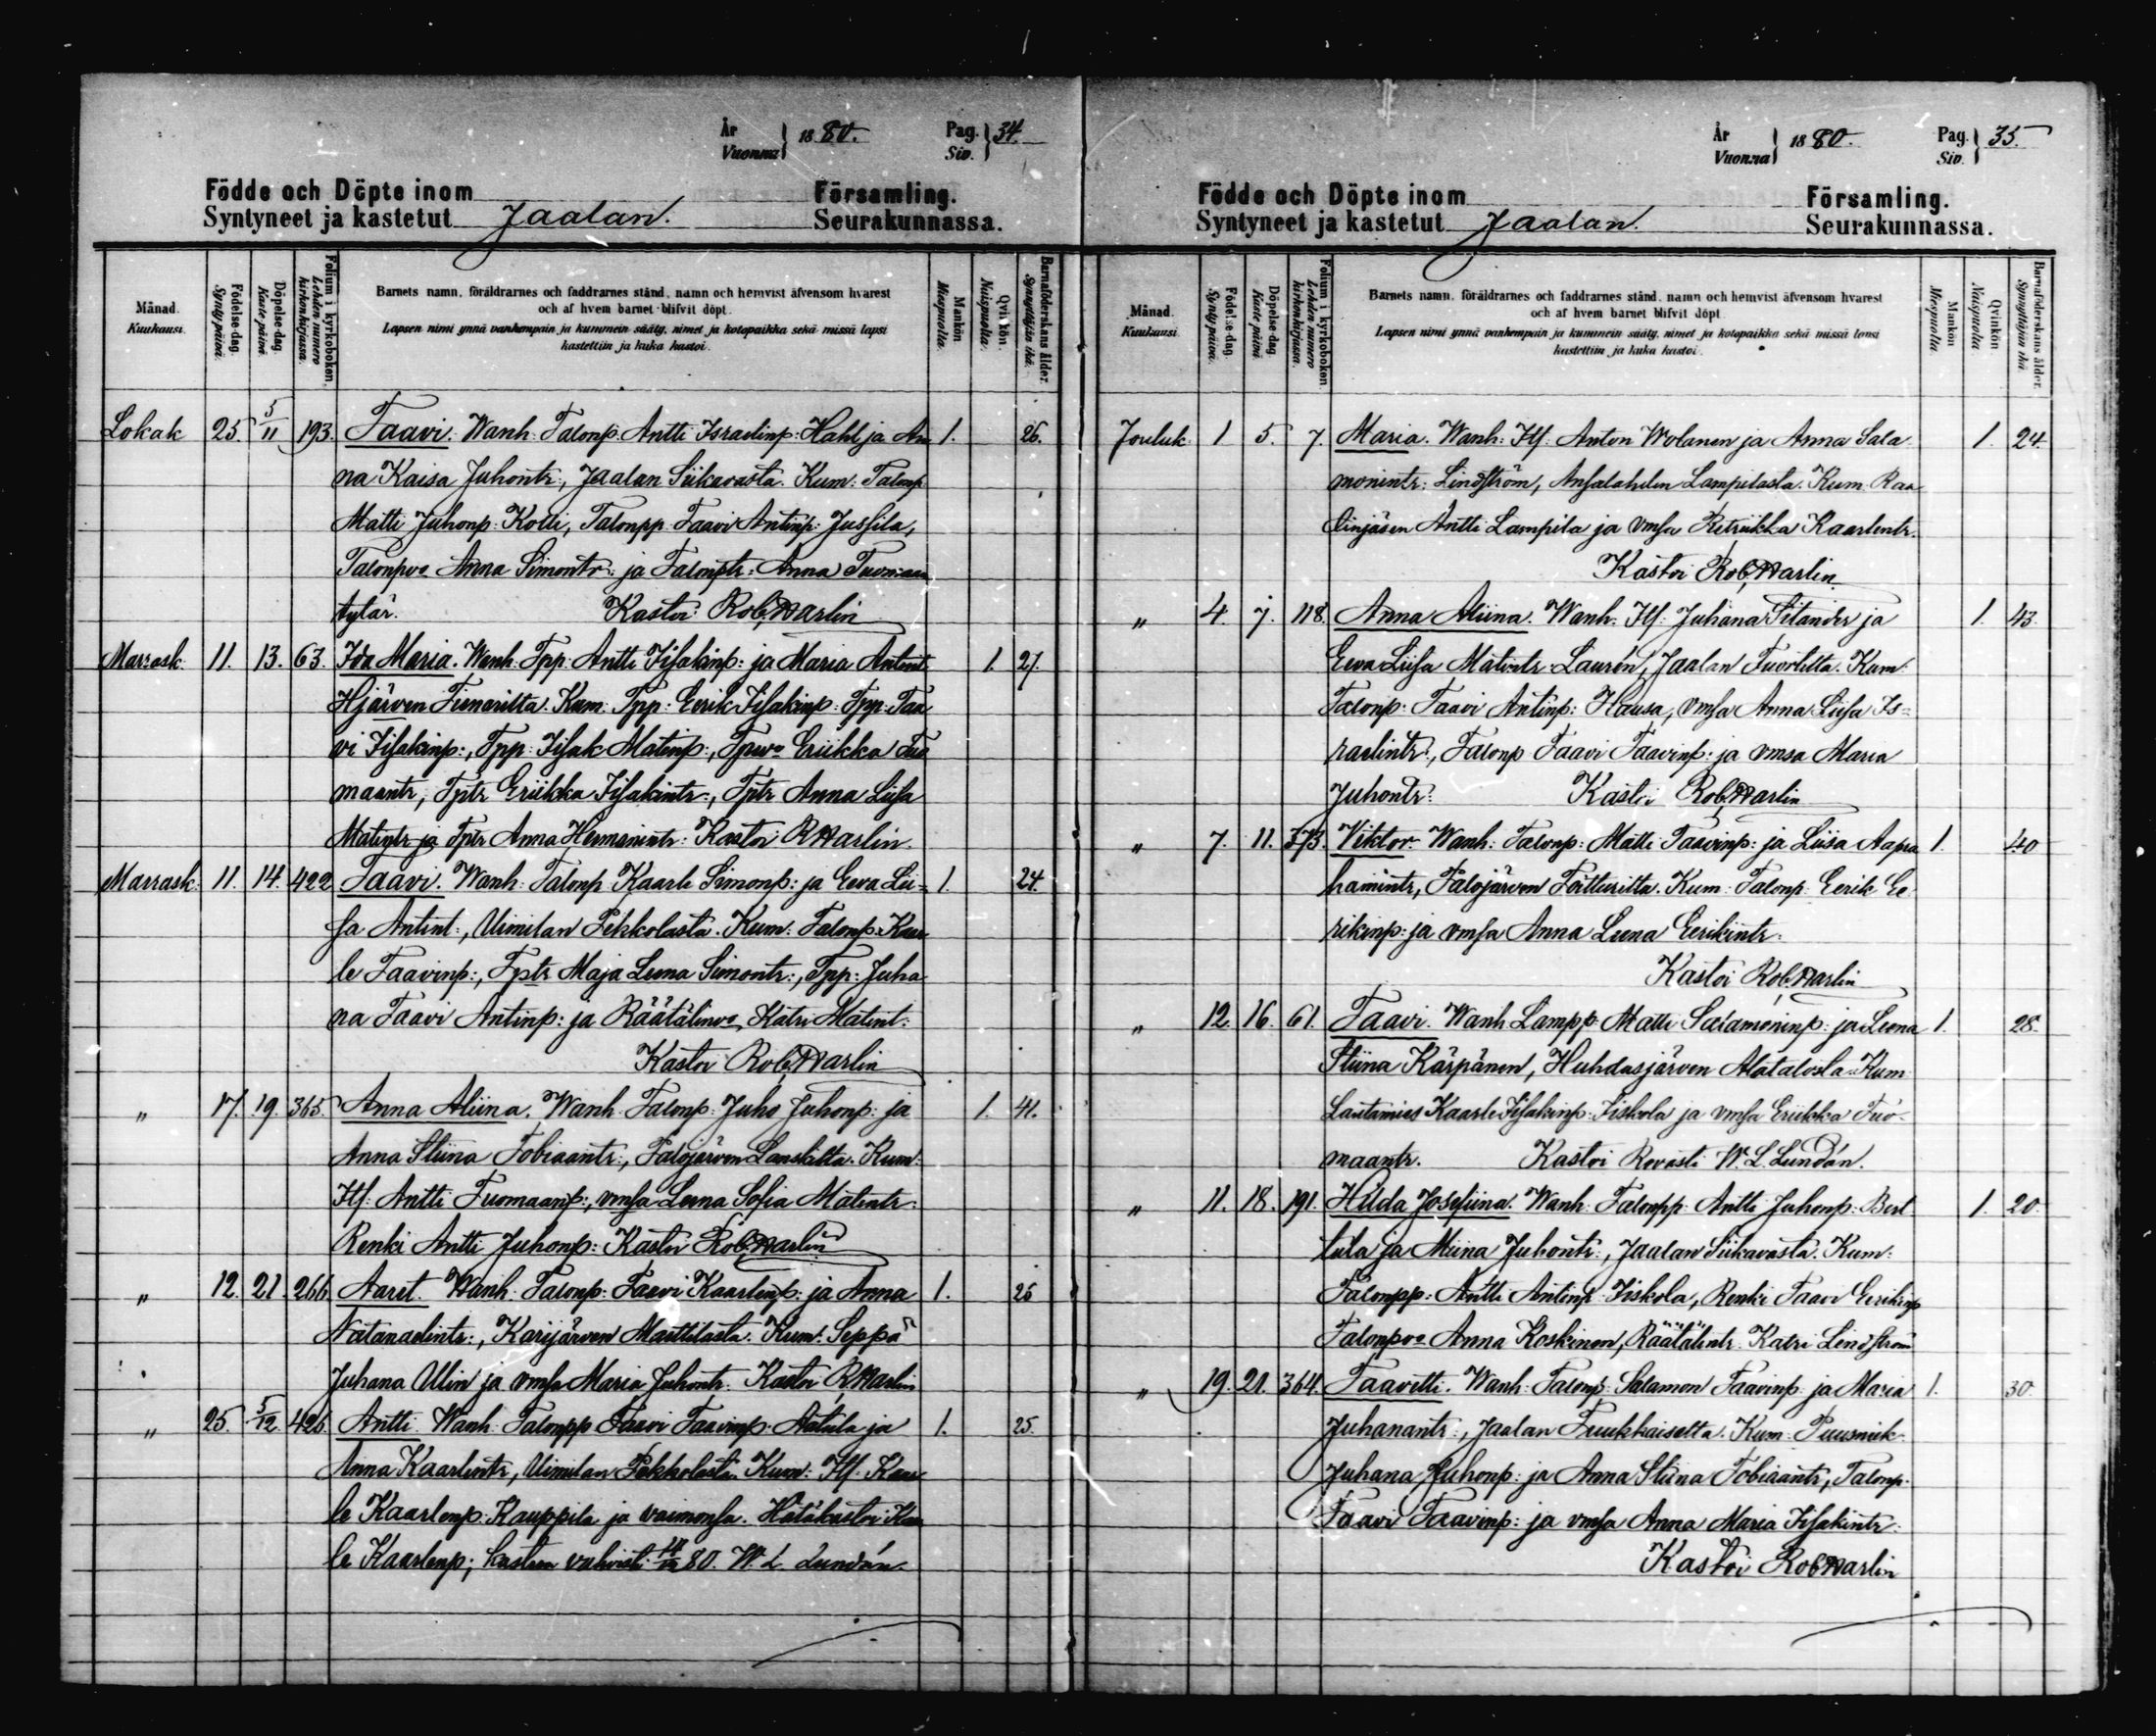 År Vuonna } 1880. Pag. Siv. } 34.
Födde och Döpte inom Församling.
Syntyneet ja kastetut Jaalan. Seurakunnassa.
Månad. Kuukausi.
Födelse-dag. Syntypäivä.
Döpelse-dag. Kastepäivä.
Folium i kyrkoboken. Lehden numero kirkonkirjassa.
Barnets namn, föräldrarnes och faddrarnes stånd, namn och hemvist äfvensom hvarest
och af hvem barnet blifvit döpt.
Lapsen nimi ynnä vanhempain ja kummein sääty, nimet ja kotopaikka sekä missä lapsi
kastettiin ja kuka kastoi.
Mankön Miespuolia.
Qvinkön. Naispuolia.
Barnaföderskans ålder. Synnyttäjän ikä.
Lokak 25. 5/11 193. Taavi. Wanh. Talonp: Antti Israelinp: Hahl ja An 1. 26.
na Kaisa Juhontr:, Jaalan Siikavasta. Kum: Talonp
Matti Juhonp: Kolli, Talonpp. Taavi Antinp: Jussila,
Talonpva Anna Simontr: ja Talonptr: Anna Tuomaan
tytär. Kastoi Rob. Warlin
Marrask. 11. 13. 63. Ida Maria. Wanh. Tpp: Antti Iisakinp: ja Maria Antint. 1. 27.
Hjärven Timaritta. Kum. Tpp: Eerik Iisakinp: Tpp: Taa
vi Iisakinp:, Tpp: Iisak Matinp:, Tpva Eriikka Tuo
maantr, Tptr Eriikka Iisakintr:, Tptr Anna Liisa
Matintr ja Tptr Anna Hermanintr: Kastoi R Warlin.
Marrask. 11. 14. 422 Taavi. Wanh: Talonp Kaarle Simonp: ja Eeva Lii- 1. 24.
sa Antint:, Uimilan Pekkolasta. Kum: Talonp. Kaar
le Taavinp:, Tptr Maja Leena Simontr:, Tpp: Juha
na Taavi Antinp: ja Räätälinva Katri Matint:
Kastoi Rob. Warlin
" 17. 19. 365. Anna Aliina. Wanh. Talonp: Juho Juhonp: ja 1. 41.
Anna Stiina Tobiaantr:, Palojärven Kum:
Itl: Antti Tuomaanp:, vmsa Leena Sofia Matintr:
Renki Antti Juhonp: Kastoi Rob. Warlin
" 12. 21. 266. Aaret. Wanh: Talonp: Taavi Kaarlenp: ja Anna 1. 26
Natanaelintr:, Karijärven Marttilasta. Kum: Seppä
Juhana Ulin ja vmsa Maria Juhontr: Kastoi R Warlin
" 25. 5/12. 426. Antti Wanh. Talonpp Taavi Taavinp: Alatula ja 1. 25.
Anna Kaarlentr, Uimilan Pekkolasta. Kum: Itl. Kaar
le Kaarlenp: Kauppila ja vaimonsa. Hätäkastoi Kaar
le Kaarlenp; kasteen vahvisti 80. W. L. Lundán.
År Vuonna } 1880. Pag. Siv. } 35.
Födde och Döpte inom Församling.
Syntyneet ja kastetut Jaalan. Seurakunnassa.
Månad. Kuukausi.
Födelse-dag. Syntypäivä.
Döpelse-dag. Kastepäivä.
Folium i kyrkoboken. Lehden numero kirkonkirjassa.
Barnets namn, föräldrarnes och faddrarnes stånd, namn och hemvist äfvensom hvarest
och af hvem barnet blifvit döpt.
Lapsen nimi ynnä vanhempain ja kummein sääty, nimet ja kotopaikka sekä missä lapsi
kastettiin ja kuka kastoi.
Mankön Miespuolia
Qvinkön Naispuolia
Barnaföderskans ålder. Synnyttäjän ikä.
Jouluk. 1 5. 7. Maria. Wanh: Itl: Anton Wolanen ja Anna Sala 1. 24.
monintr: Lindström, Ansalahden Lampilasta. Kum. Raa
tinjäsen Antti Lampila ja vmsa Retriikka Kaarlentr.
Kastoi Rob. Warlin
" 4. 7. 118. Anna Aliina. Wanh. Itl: Juhana Silander ja 1. 43.
Eeva Liisa Matintr: Laurén, Jaalan Kum:
Talonp: Taavi Antinp: Hausa, vmsa Anna Liisa Is=
raelintr:, Talonp Taavi Taavinp: ja vmsa Maria
Juhontr: Kastoi Rob. Warlin
" 7. 11. 373. Viktor Wanh: Talonp: Matti Taavinp: ja Liisa Aapra 1. 40
hamintr, Palojärven Kum: Talonp: Eerik Ee
rikinp: ja vmsa Anna Leena Eerikintr:
Kastoi Rob. Warlin
" 12. 16. 61. Taavi. Wanh Lampp: Matti Salamoninp: ja Leena 1. 28.
Stiina Kärpänen, Huhdasjärven Alatalosta. Kum
Lautamies Kaarle Iisakinp: Iiskola ja vmsa Eriikka Tuo-
maantr. Kastoi Rovasti W. L. Lundán.
" 11. 18. 191. Hilda Josefiina. Wanh: Talonpp: Antti Juhonp: Bert 1. 20.
tula ja Miina Juhontr:, Jaalan Siikavasta. Kum:
Talonpp: Antti Antinp Iiskola, Renki Taavi Eerikinp
Talonpva Anna Koskinen, Räätälintr: Katri Lindström
" 19. 21. 364. Taavitti. Wanh: Talonp: Salamon Taavinp: ja Maria 1. 30.
Juhanantr:, Jaalan Kum: Puusniek:
Juhana Juhonp: ja Anna Stiina Tobiaantr, Talonp:
Taavi Taavinp: ja vmsa Anna Maria Iisakintr:
Kastoi Rob Warlin